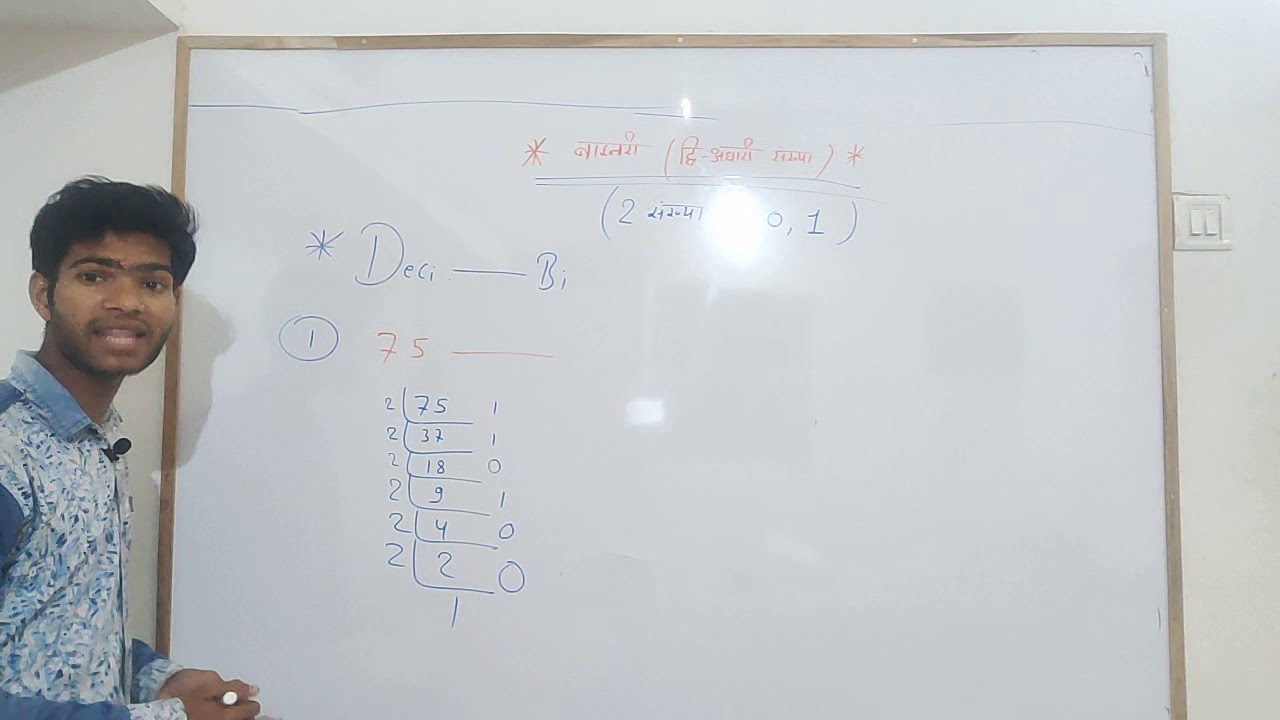 * बाइनरी (द्वि-अधारी संख्या) *
(2 संख्या 0, 1)
* Deci — Bi
1 75 —
2 75 1
2 37 1
2 18 0
2 9 1
2 4 0
2 2 0
1